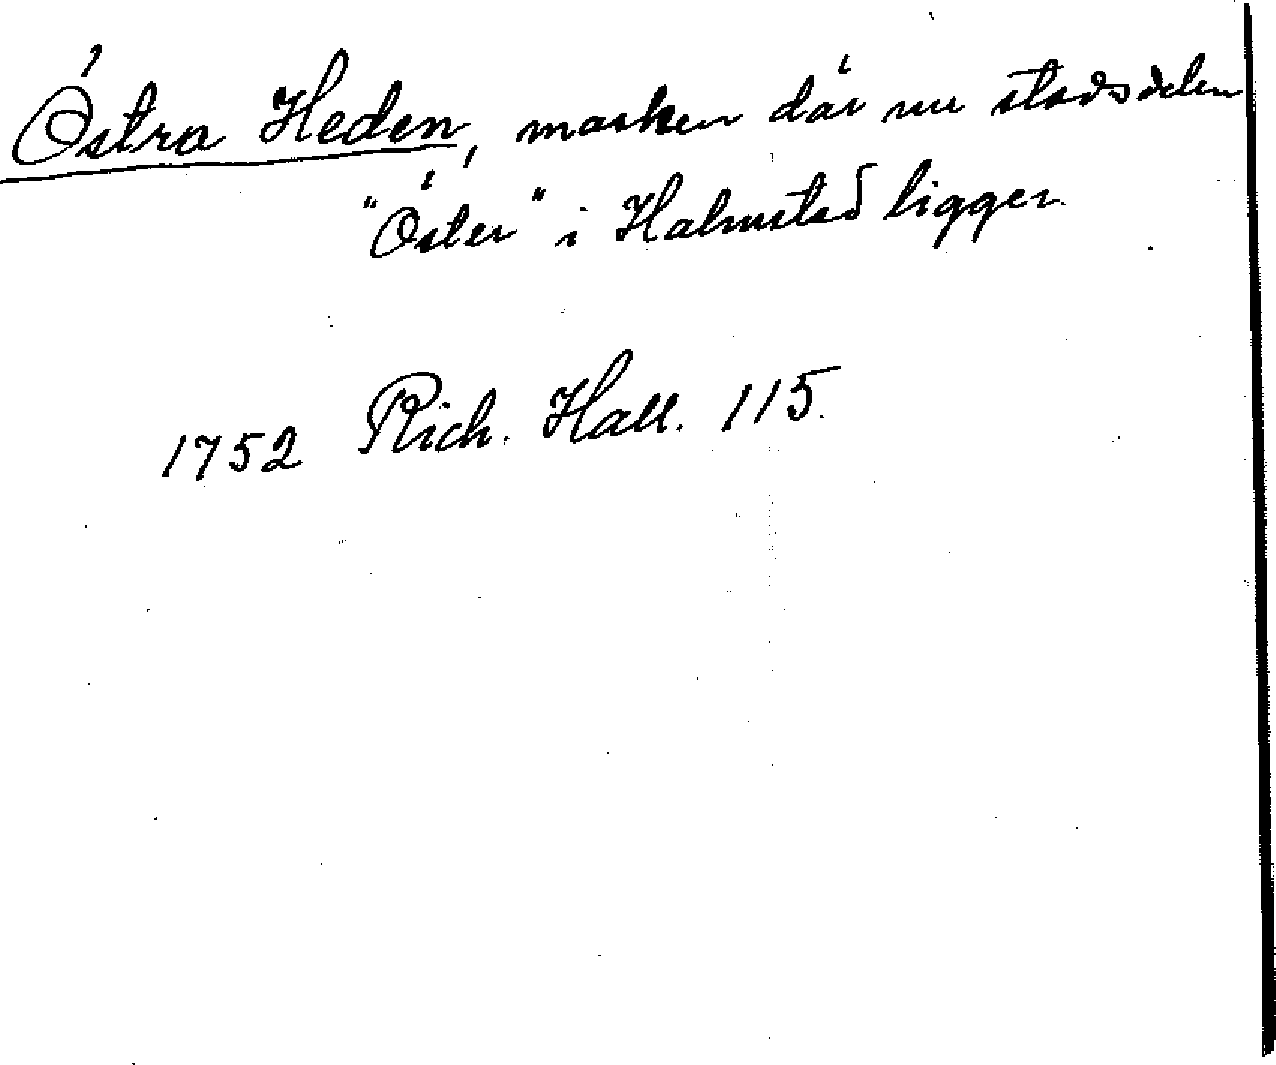 Östra Heden, marken där nu stadsdelen
"Öster" i Halmstad ligger.
1752 Rich. Hall. 115.